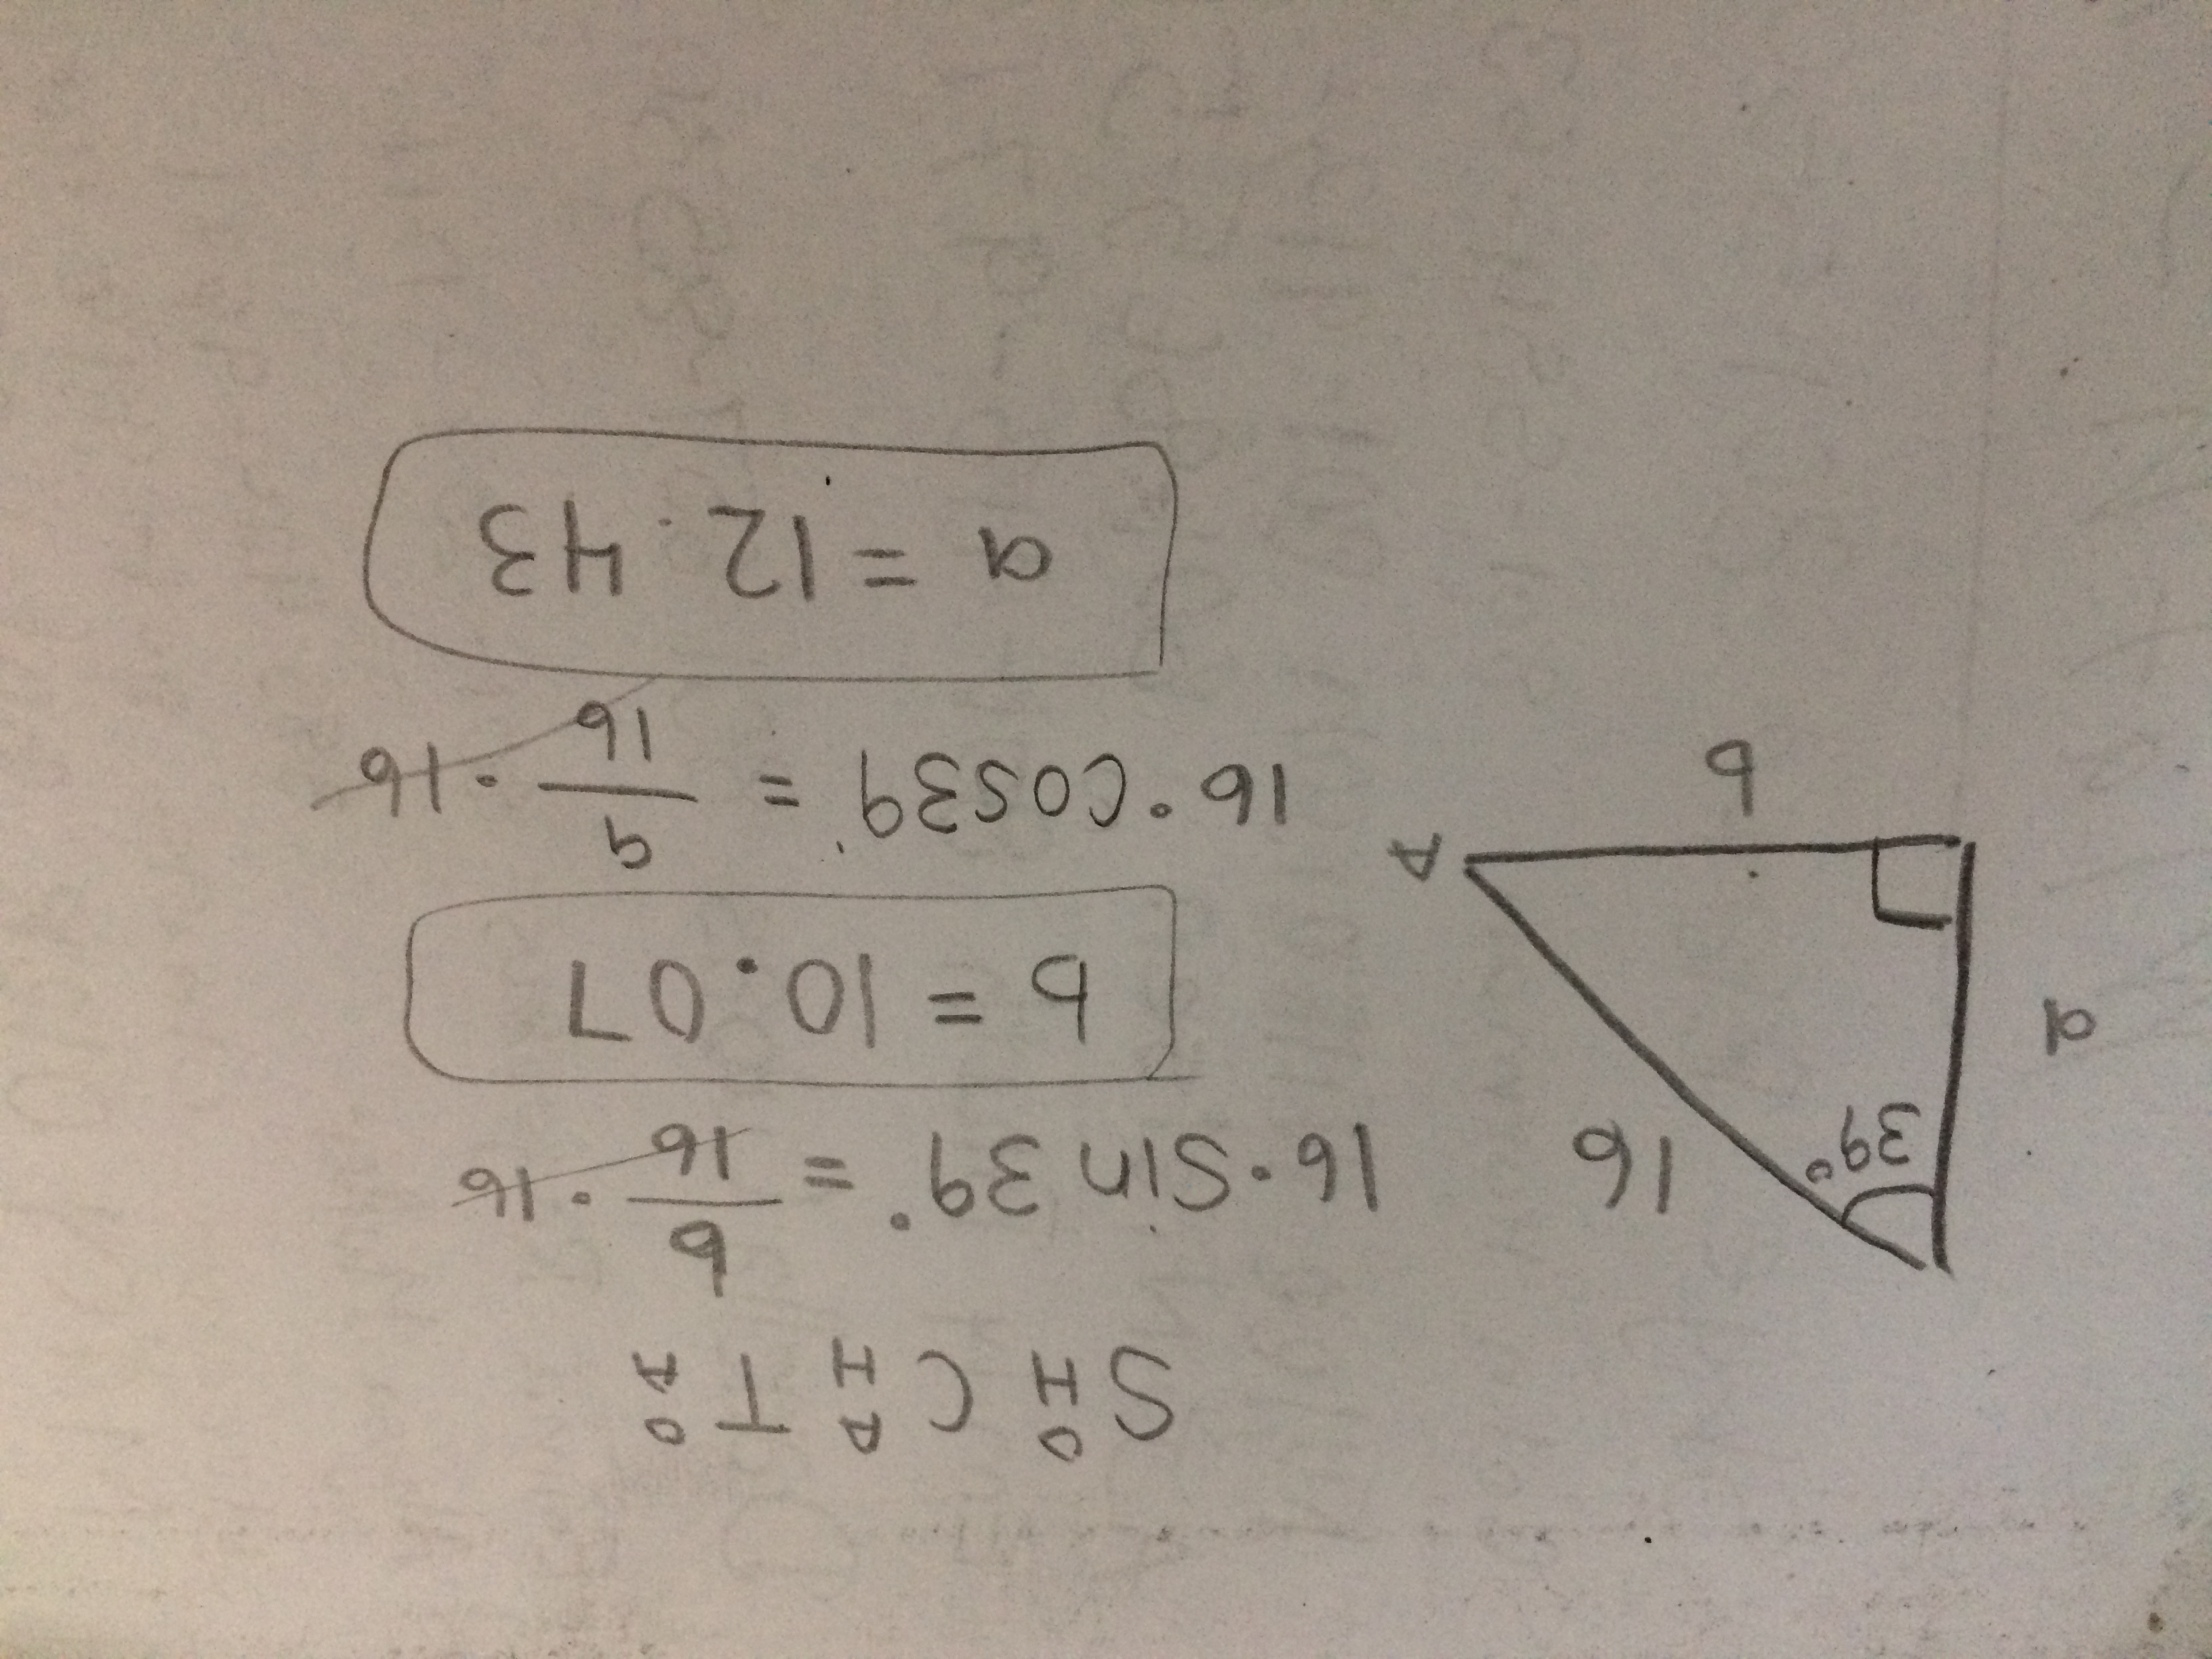 S O/H C A/H T O/A
39°
16
a
A
b
16·Sin 39° = b/16 ·16
b = 10.07
16·cos39° = a/16 ·16
a = 12.43